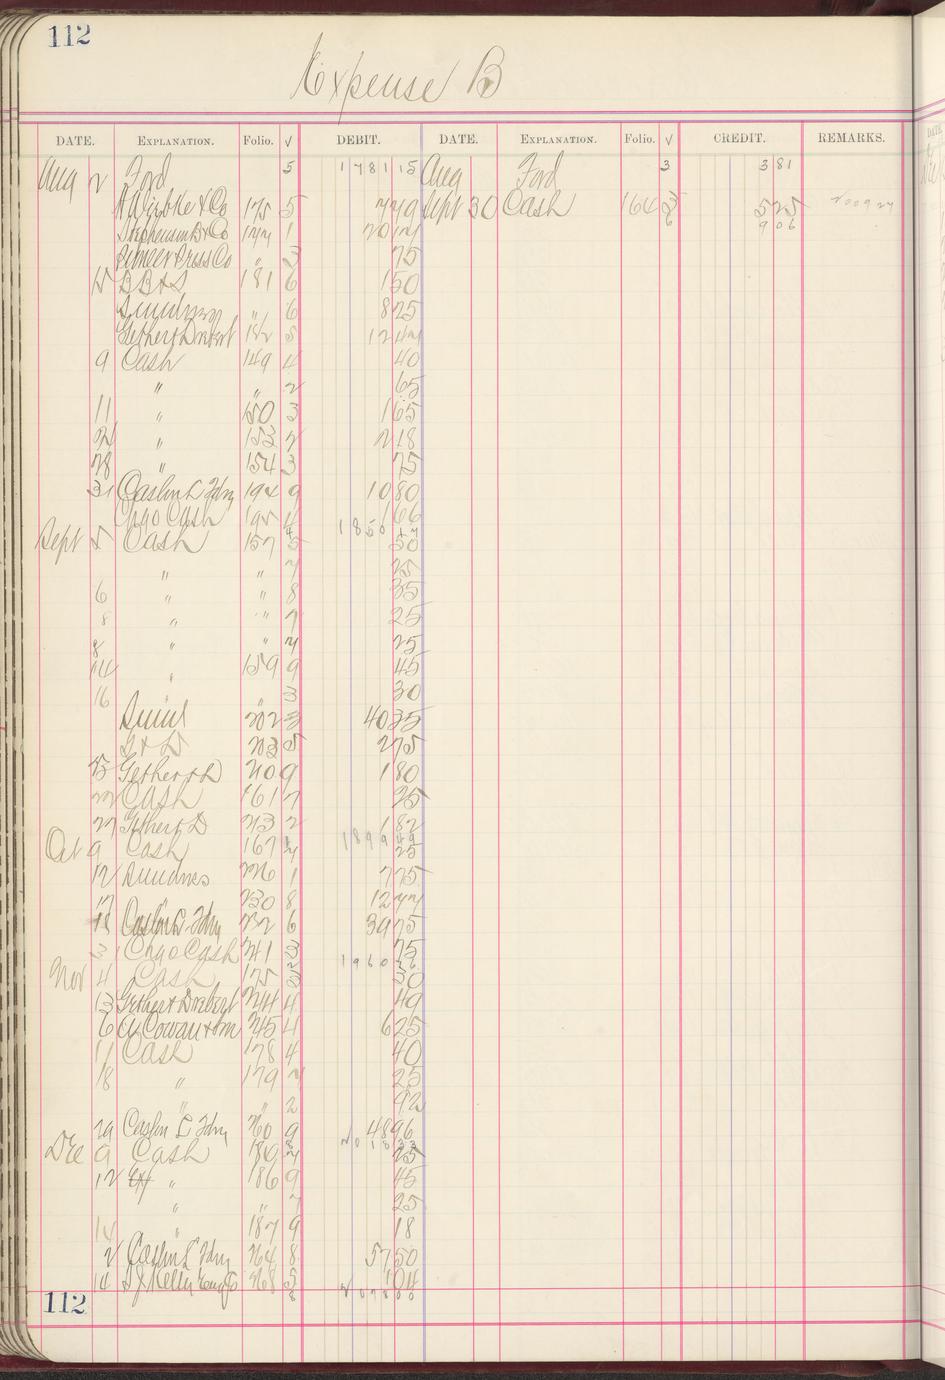 112
Expense B
DATE. EXPLANATION. Folio. √ DEBIT. DATE. EXPLANATION. Folio. √ CREDIT. REMARKS.
Aug 2 Ford 5 1781 15 Aug Ford 3 3 81
& Co 175 5 7 79 Sept 30 Cash 164 5 25
Stephenson B & Co 177 1 20 17 9 06
Pioneer Press Co " 3 75
15 B B & S 181 6 1 50
" 6 8 25
Gethert & Drebert 182 5 12 47
9 Cash 149 4 40
" " 2 65
11 " 150 3 1 65
24 " 153 2 2 18
28 " 154 3 75
31 Caslin L Fdry 194 9 10 80
Chgo Cash 195 4 1 66
1850 17
Sept 5 Cash 157 5 50
" " 7 25
6 " " 8 35
8 " " 7 25
8 " " 7 25
14 " 159 9 45
16 " 3 30
202 3 40 35
G & D 203 5 2 75
15 Gether & D 210 9 1 80
22 Cash 161 7 25
27 Gethert D 213 2 1 82
1899 49
Oct 9 Cash 167 7 25
12 Sundries 226 1 7 75
17 230 8 12 77
18 Caslin L Fdry 232 6 39 75
31 Chgo Cash 241 3 75
1960 76
Nov 4 Cash 175 5 50
13 Gethert & Drebert 244 4 49
6 A Cowan & Son 245 4 6 25
11 Cash 178 4 40
18 " 179 7 25
" " 2 92
29 Caslin L Fdry 260 9 48 96
2018 33
Dec 9 Cash 186 7 25
12 " 186 9 45
" " 7 25
14 " 187 9 18
2 Caslin L Fdry 264 8 57 50
14 S J Kelly Eng Co 268 5 1 04
8 2078 00
112